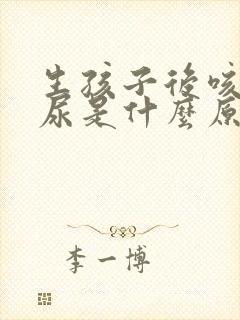 生孩子後咳
尿是什麼原
李一博